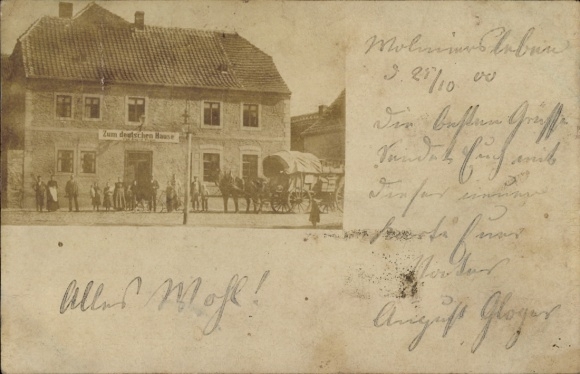 Zum deutschen Hause
Wolmirsleben
d. 25/10 00
Die besten Grüsse
sendet Euch mit
dieser neuen
Karte Euer
Vater
August Gloger
Alles Wohl!